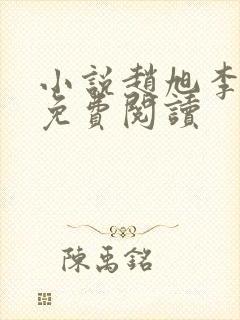 小說趙旭李
免費閱讀
陳禹銘